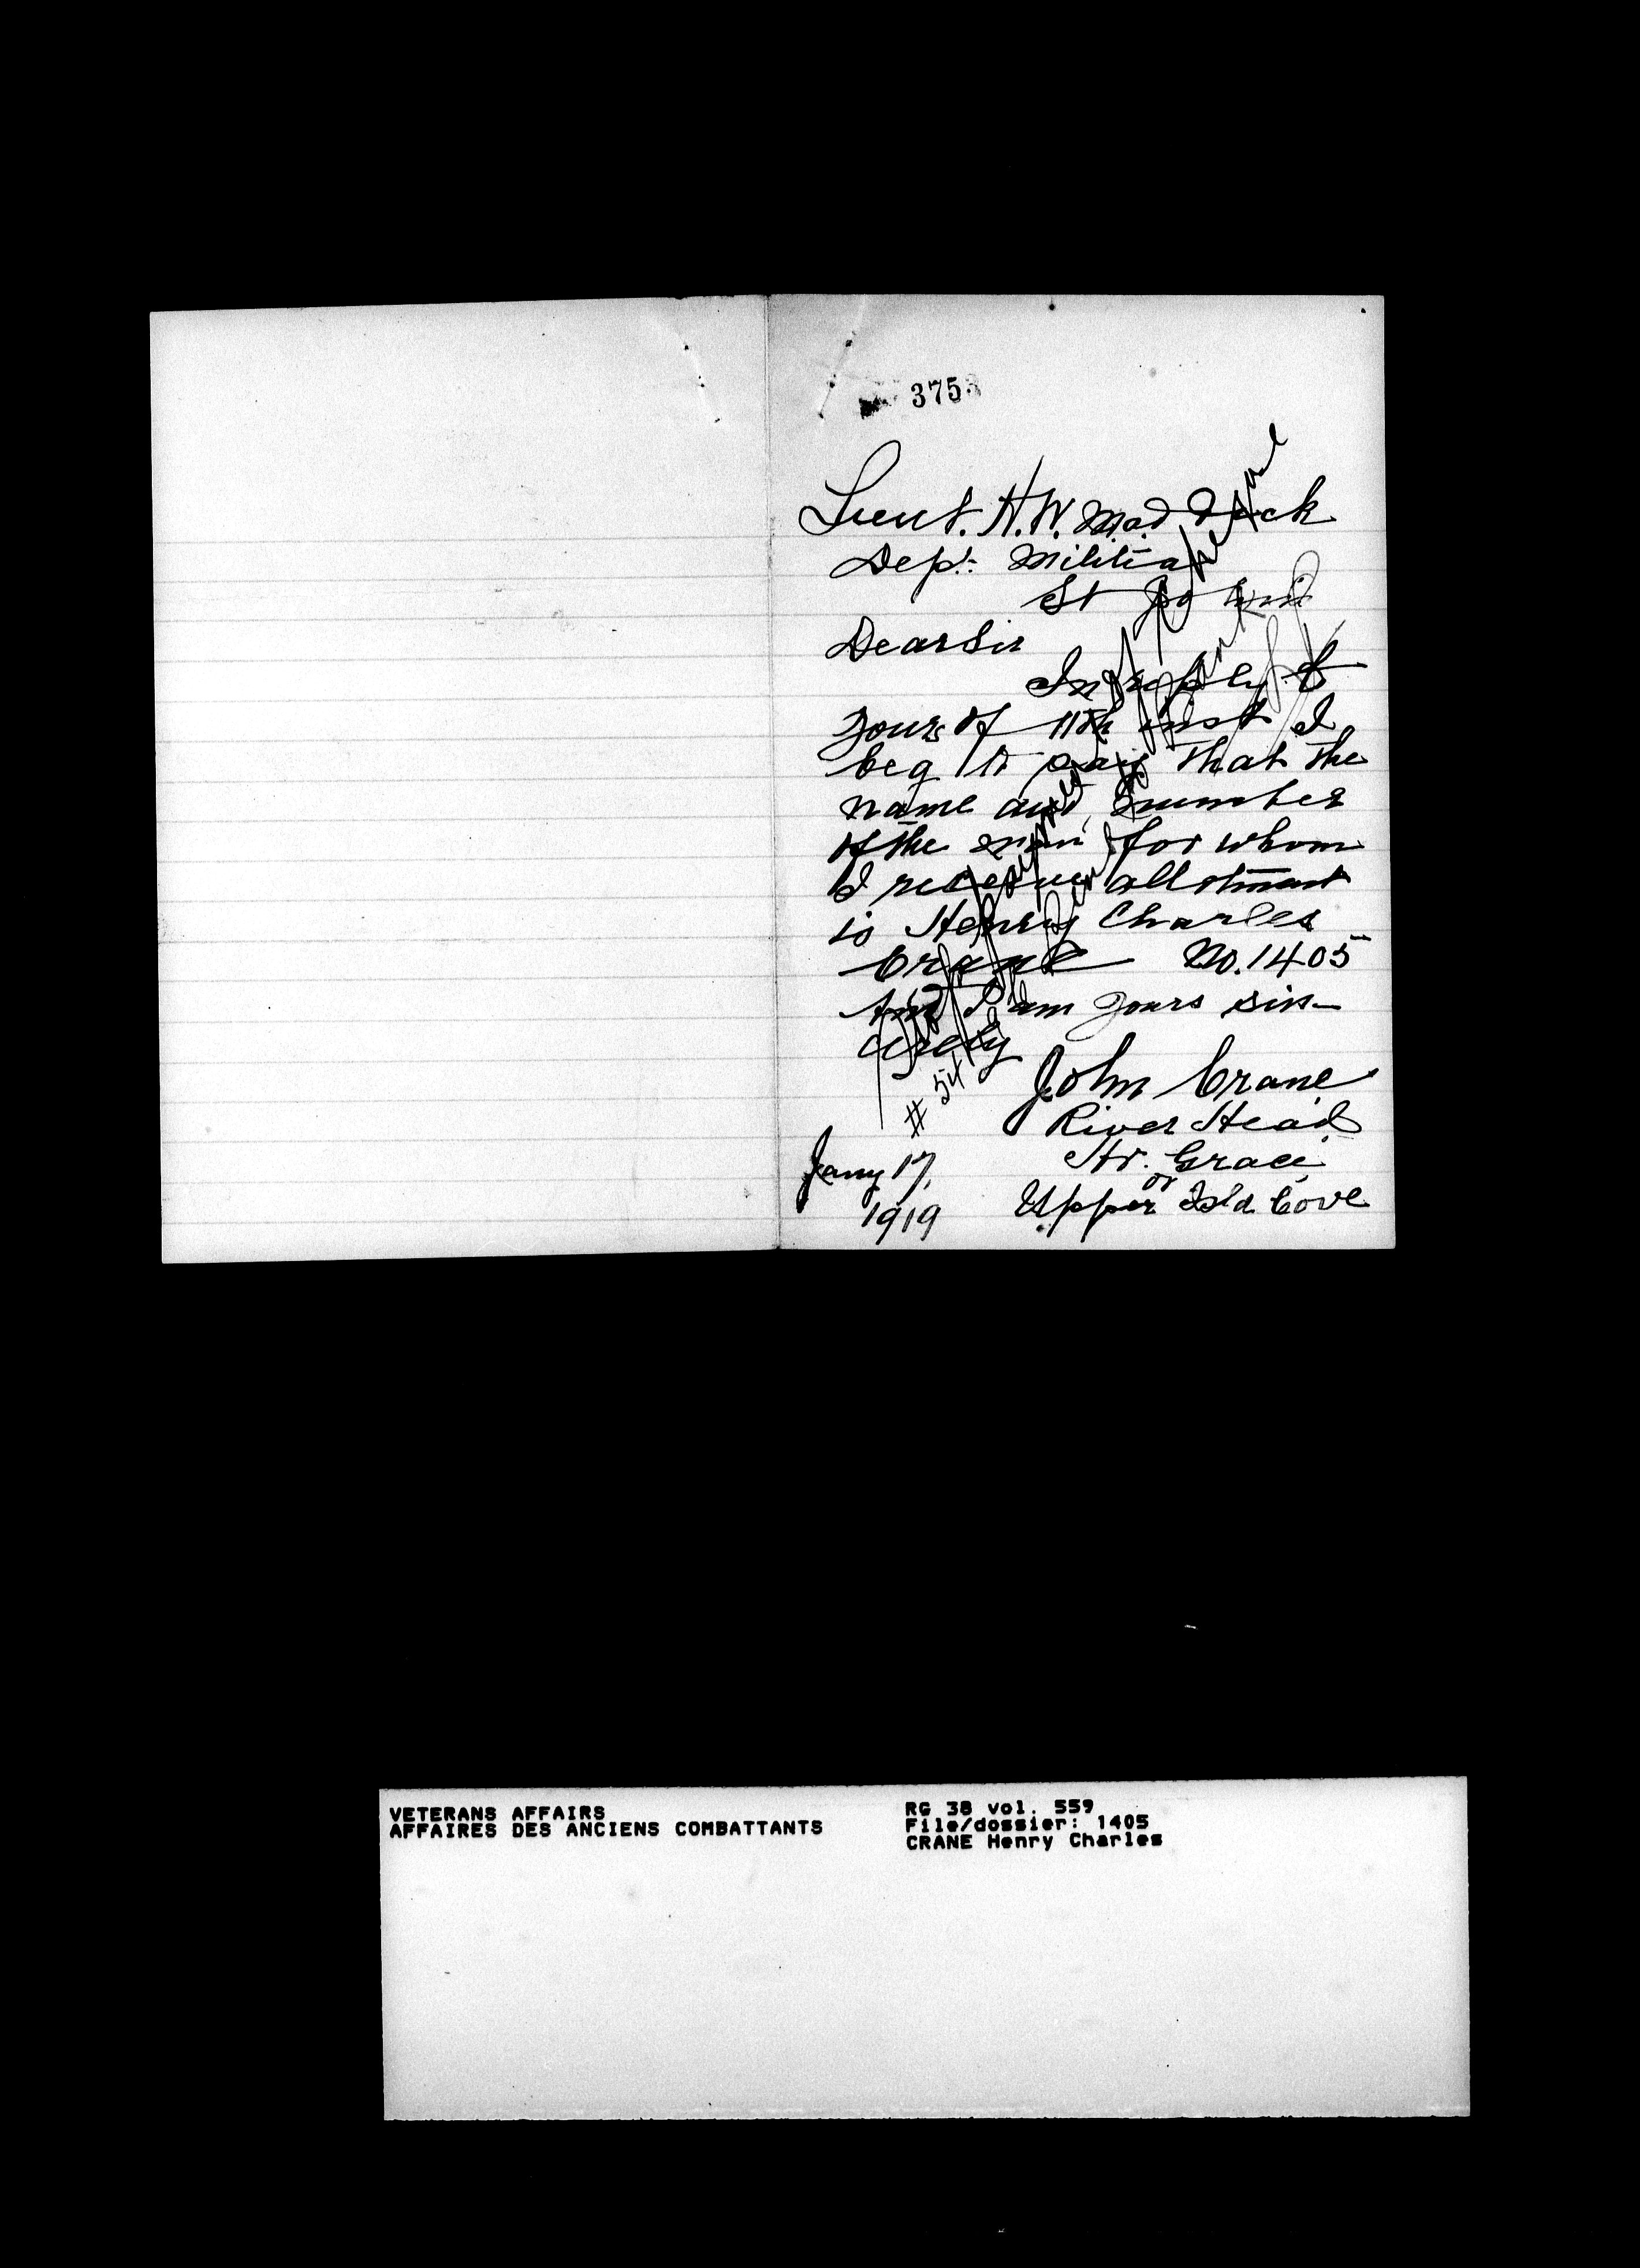 375
Lieut. H.W. Maddock
Dept. Militia
St John's
Dear Sir
In reply to
yours of 11th inst I
beg to say that the
name and number
of the man for whom
I receive allotment
is Henry Charles
Crane No. 1405
And I am yours sin-
cerely
John Crane
River Head
Hr. Grace
or
Upper Isl'd Cove
Jany 17,
1919
VETERANS AFFAIRS
AFFAIRES DES ANCIENS COMBATTANTS
RG 38 vol. 559
File/dossier: 1405
CRANE Henry Charles